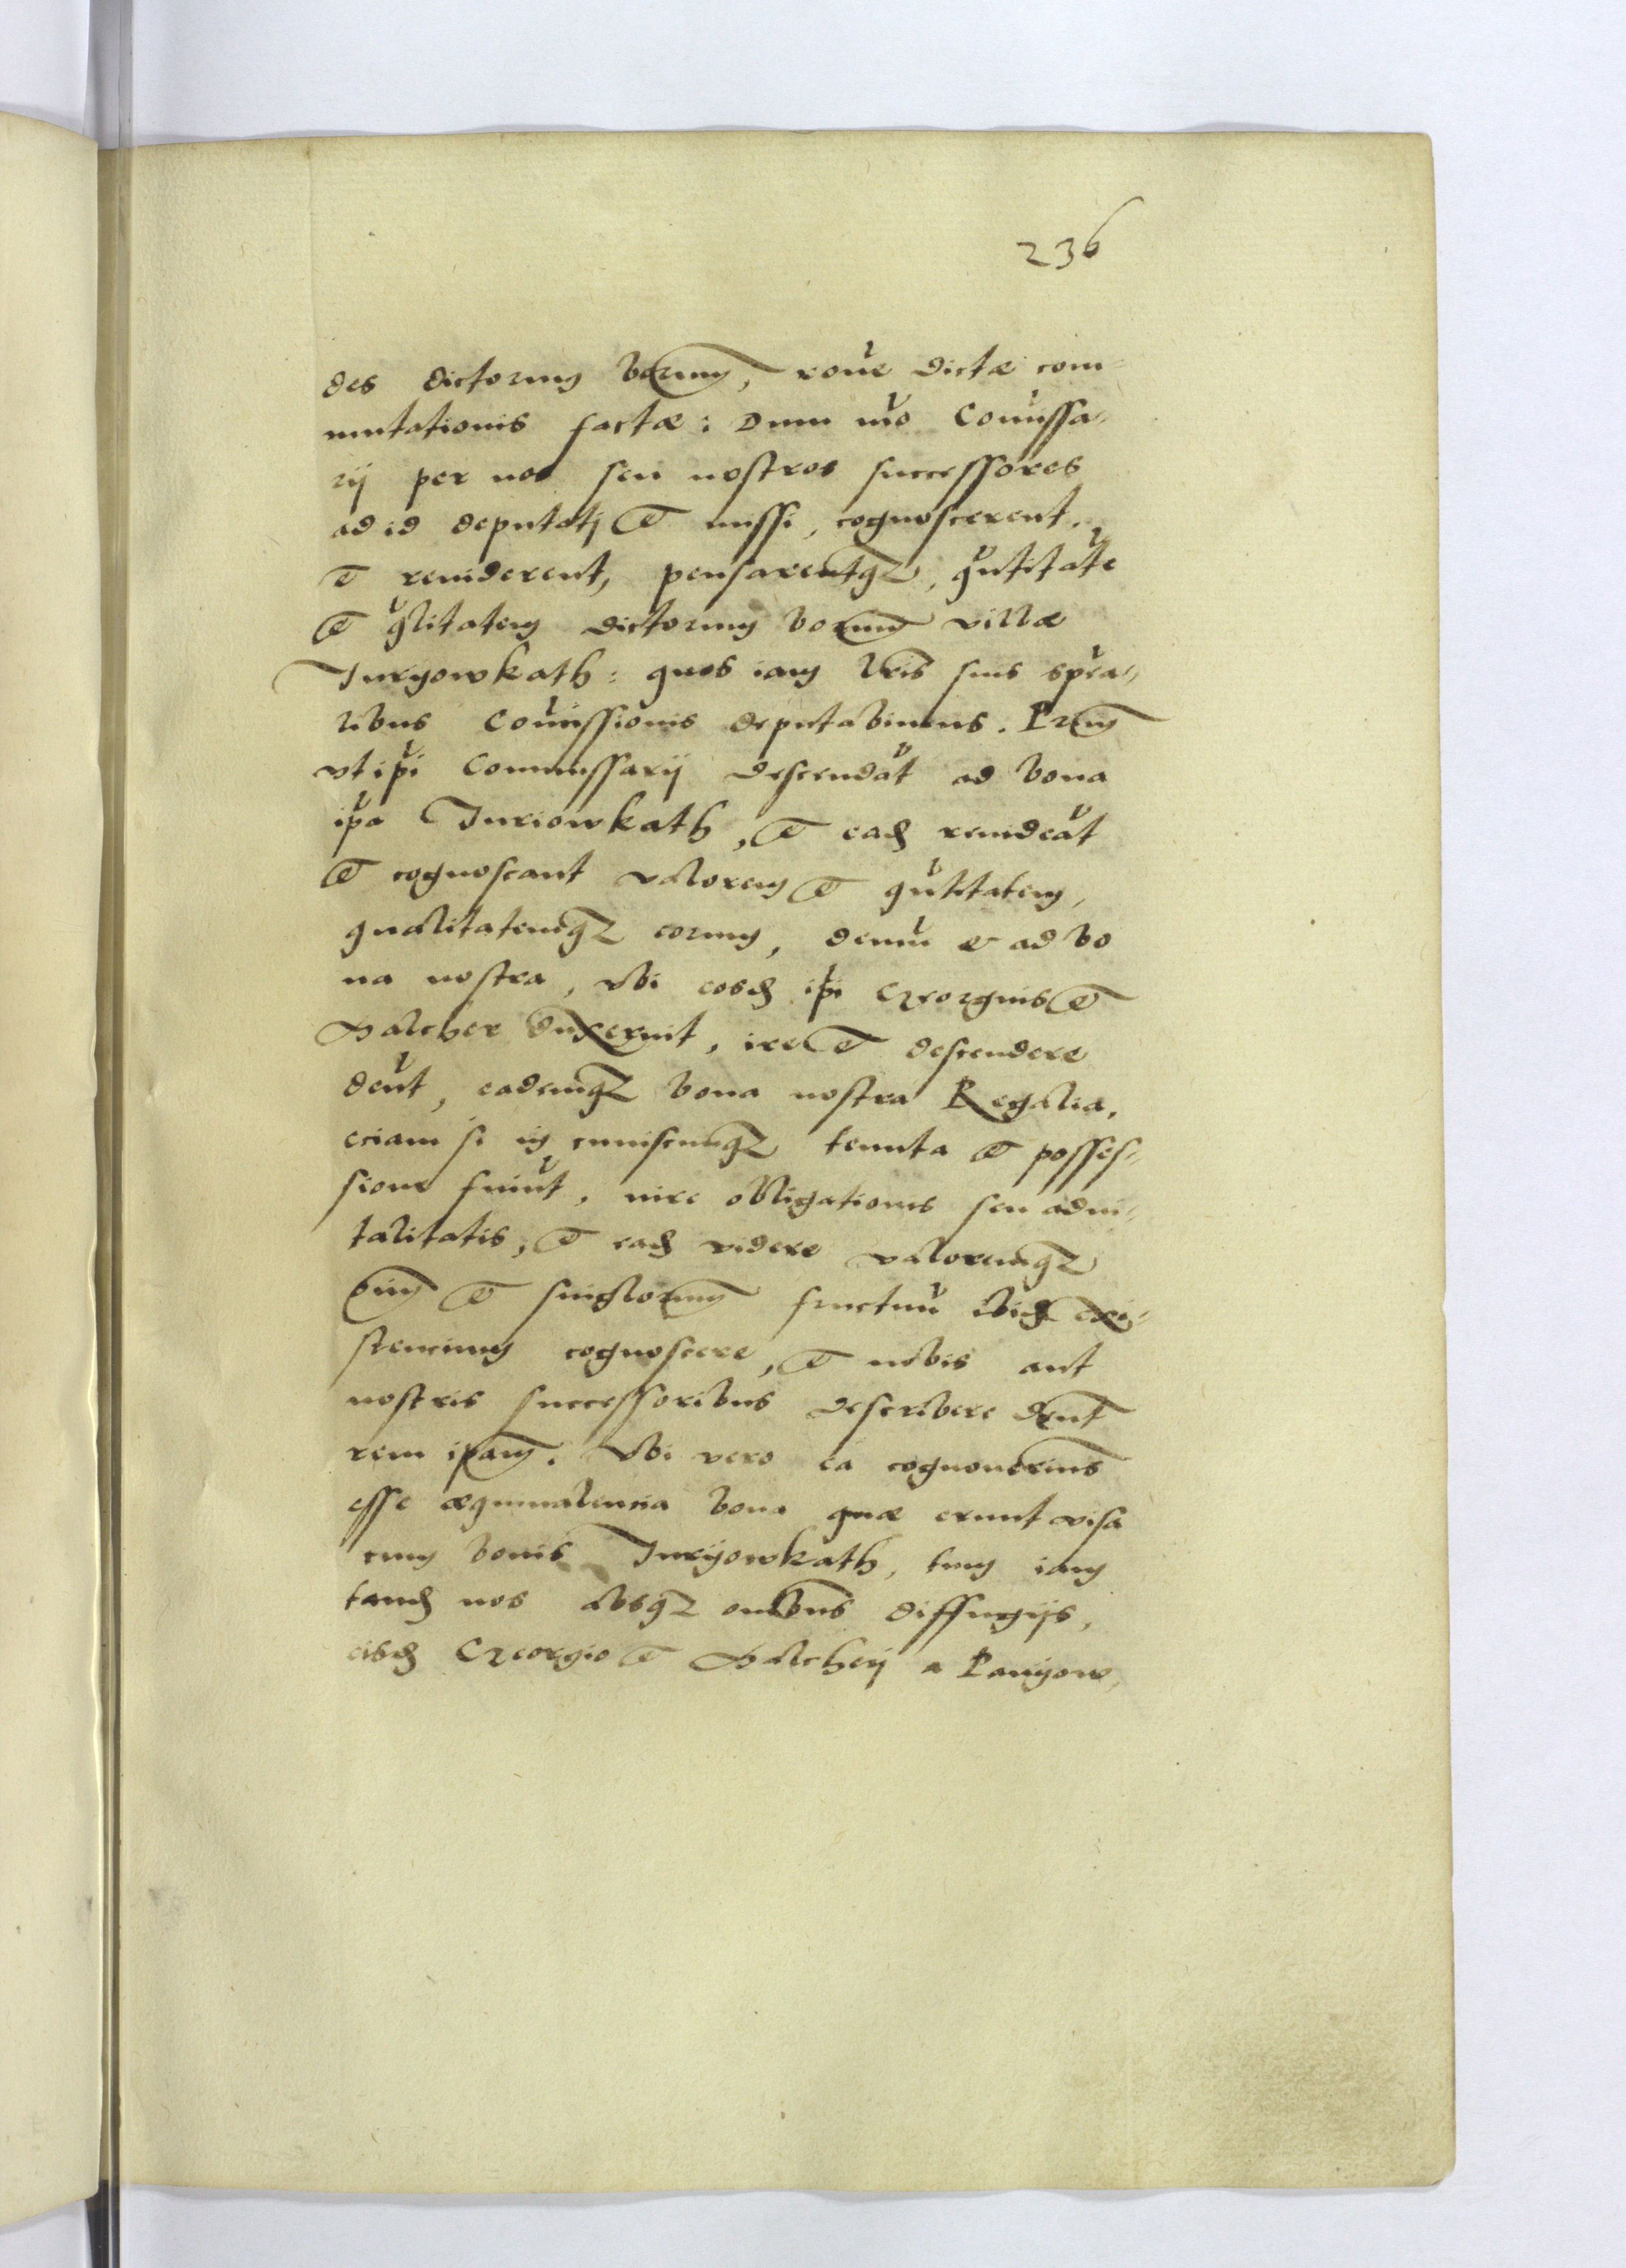 236
des dictorum bonorum, rone dictæ com-
mutationis factæ: Dum mo Comissa-
rij per nos seu nostros successores
ad id deputatj et missi, cognoscerent
et reuiderent, pensarentq3, qntitate
et qlitatem dictorum bonorum villæ
Juryowkath: quos iam lris suis spea-
libus Comissionis deputabimus. Primum
vt ipi Commissarij descendat ad bona
ipa Juriowkath, et ead reuideat
et cognoscant valorem et qntitatem,
qualitatemq3 eorum, demu et ad bo
na nostra, vbi eosd ipi Georgius et
Balcher duxerint, ire et descendere
debent, eademq3 bona nostra Regalia,
eciam si in cuiuscunq3 tenuta et posses-
sione fuint, iure obligationis seu advi-
talitatis, et ead videre valoremq3
omnium et singulorum fructuu ibid exi-
stencium cognoscere, et nobis aut
nostris successoribus describere debent
rem ipam. Vbi vero ea cognouerimus
esse æquiualencia bona quæ erunt visa
cum bonis Juryowkath, tum iam
tand nos absq3 omibus diffugijs,
eisd Georgio et Balcherj a Panyow,